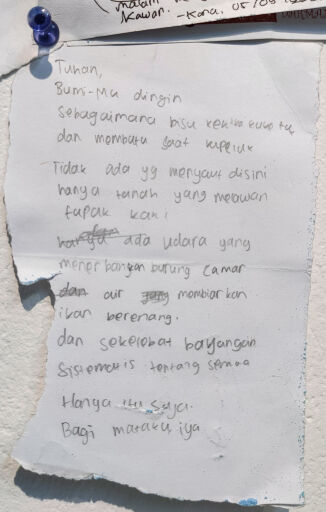 malam
Kawan. - Kara, 05/09
Tuhan,
Bumi-Mu dingin
sebagaimana bisu ketika
dan membatu saat kupeluk
Tidak ada yg menyaut disini
hanya tanah yang melawan
tapak kaki
hanya ada udara yang
menerbangkan burung camar
dan air yang membiarkan
ikan berenang.
dan sekelebat bayangan
Sistematis tentang semua
Hanya itu saja.
Bagi mataku iya